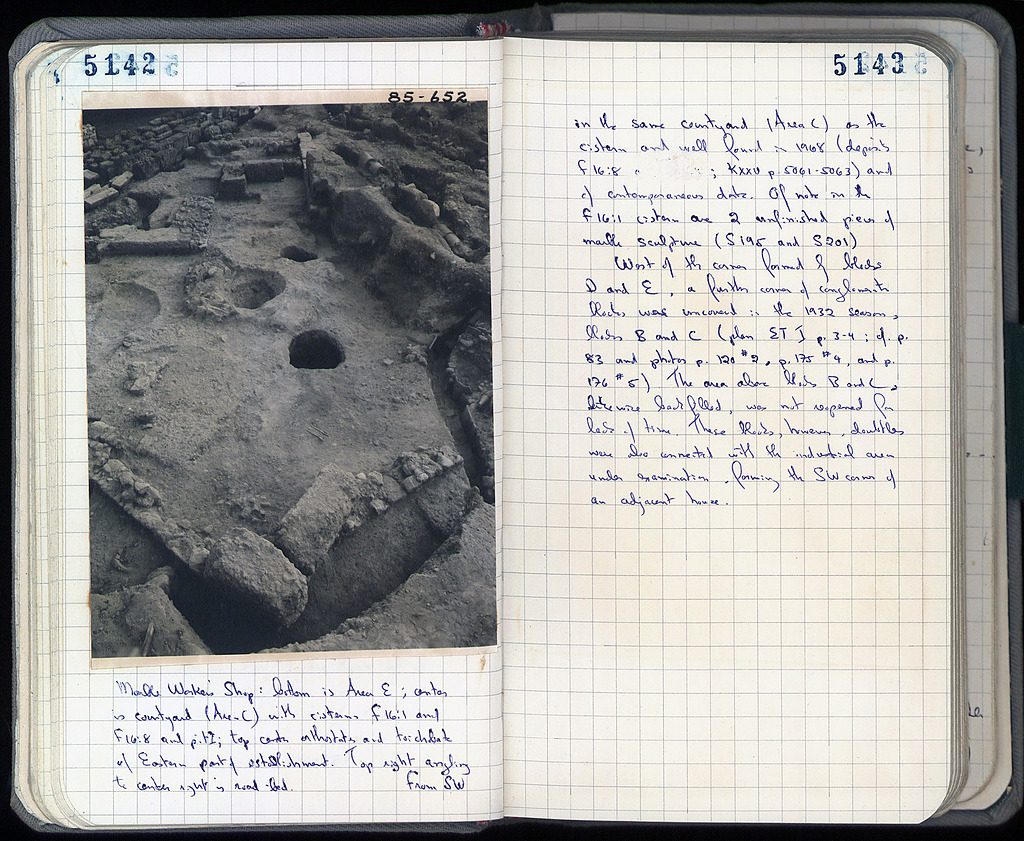 5142
85-652
Marble Worker's Shop: bottom is Area E; center
is courtyard (Area C) with cisterns F16:1 and
F16:8 and pit I; top center orthostate and toichobate
of Eastern part of establishment. Top right angling
to center right is road-bed. From SW
5143
in the same courtyard (Area C) as the
cistern and well found in 1968 (deposits
F16:8 ; KXXV p. 5061-5063) and
of contemporaneous date. Of note in the
F16:1 cistern are 2 unfinished pieces of
marble sculpture (S195 and S201)
West of the corner formed by blocks
D and E, a further corner of conglomerate
blocks was uncovered in the 1932 season,
blocks B and C (plan ET I p. 3-4; cf. p.
83 and photos p. 120 #2, p. 175 #4, and p.
176 #5) The area above blocks B and C,
likewise backfilled, was not reopened for
lack of time. These blocks, however, doubtless
were also connected with the industrial area
under examination, forming the SW corner of
an adjacent house.